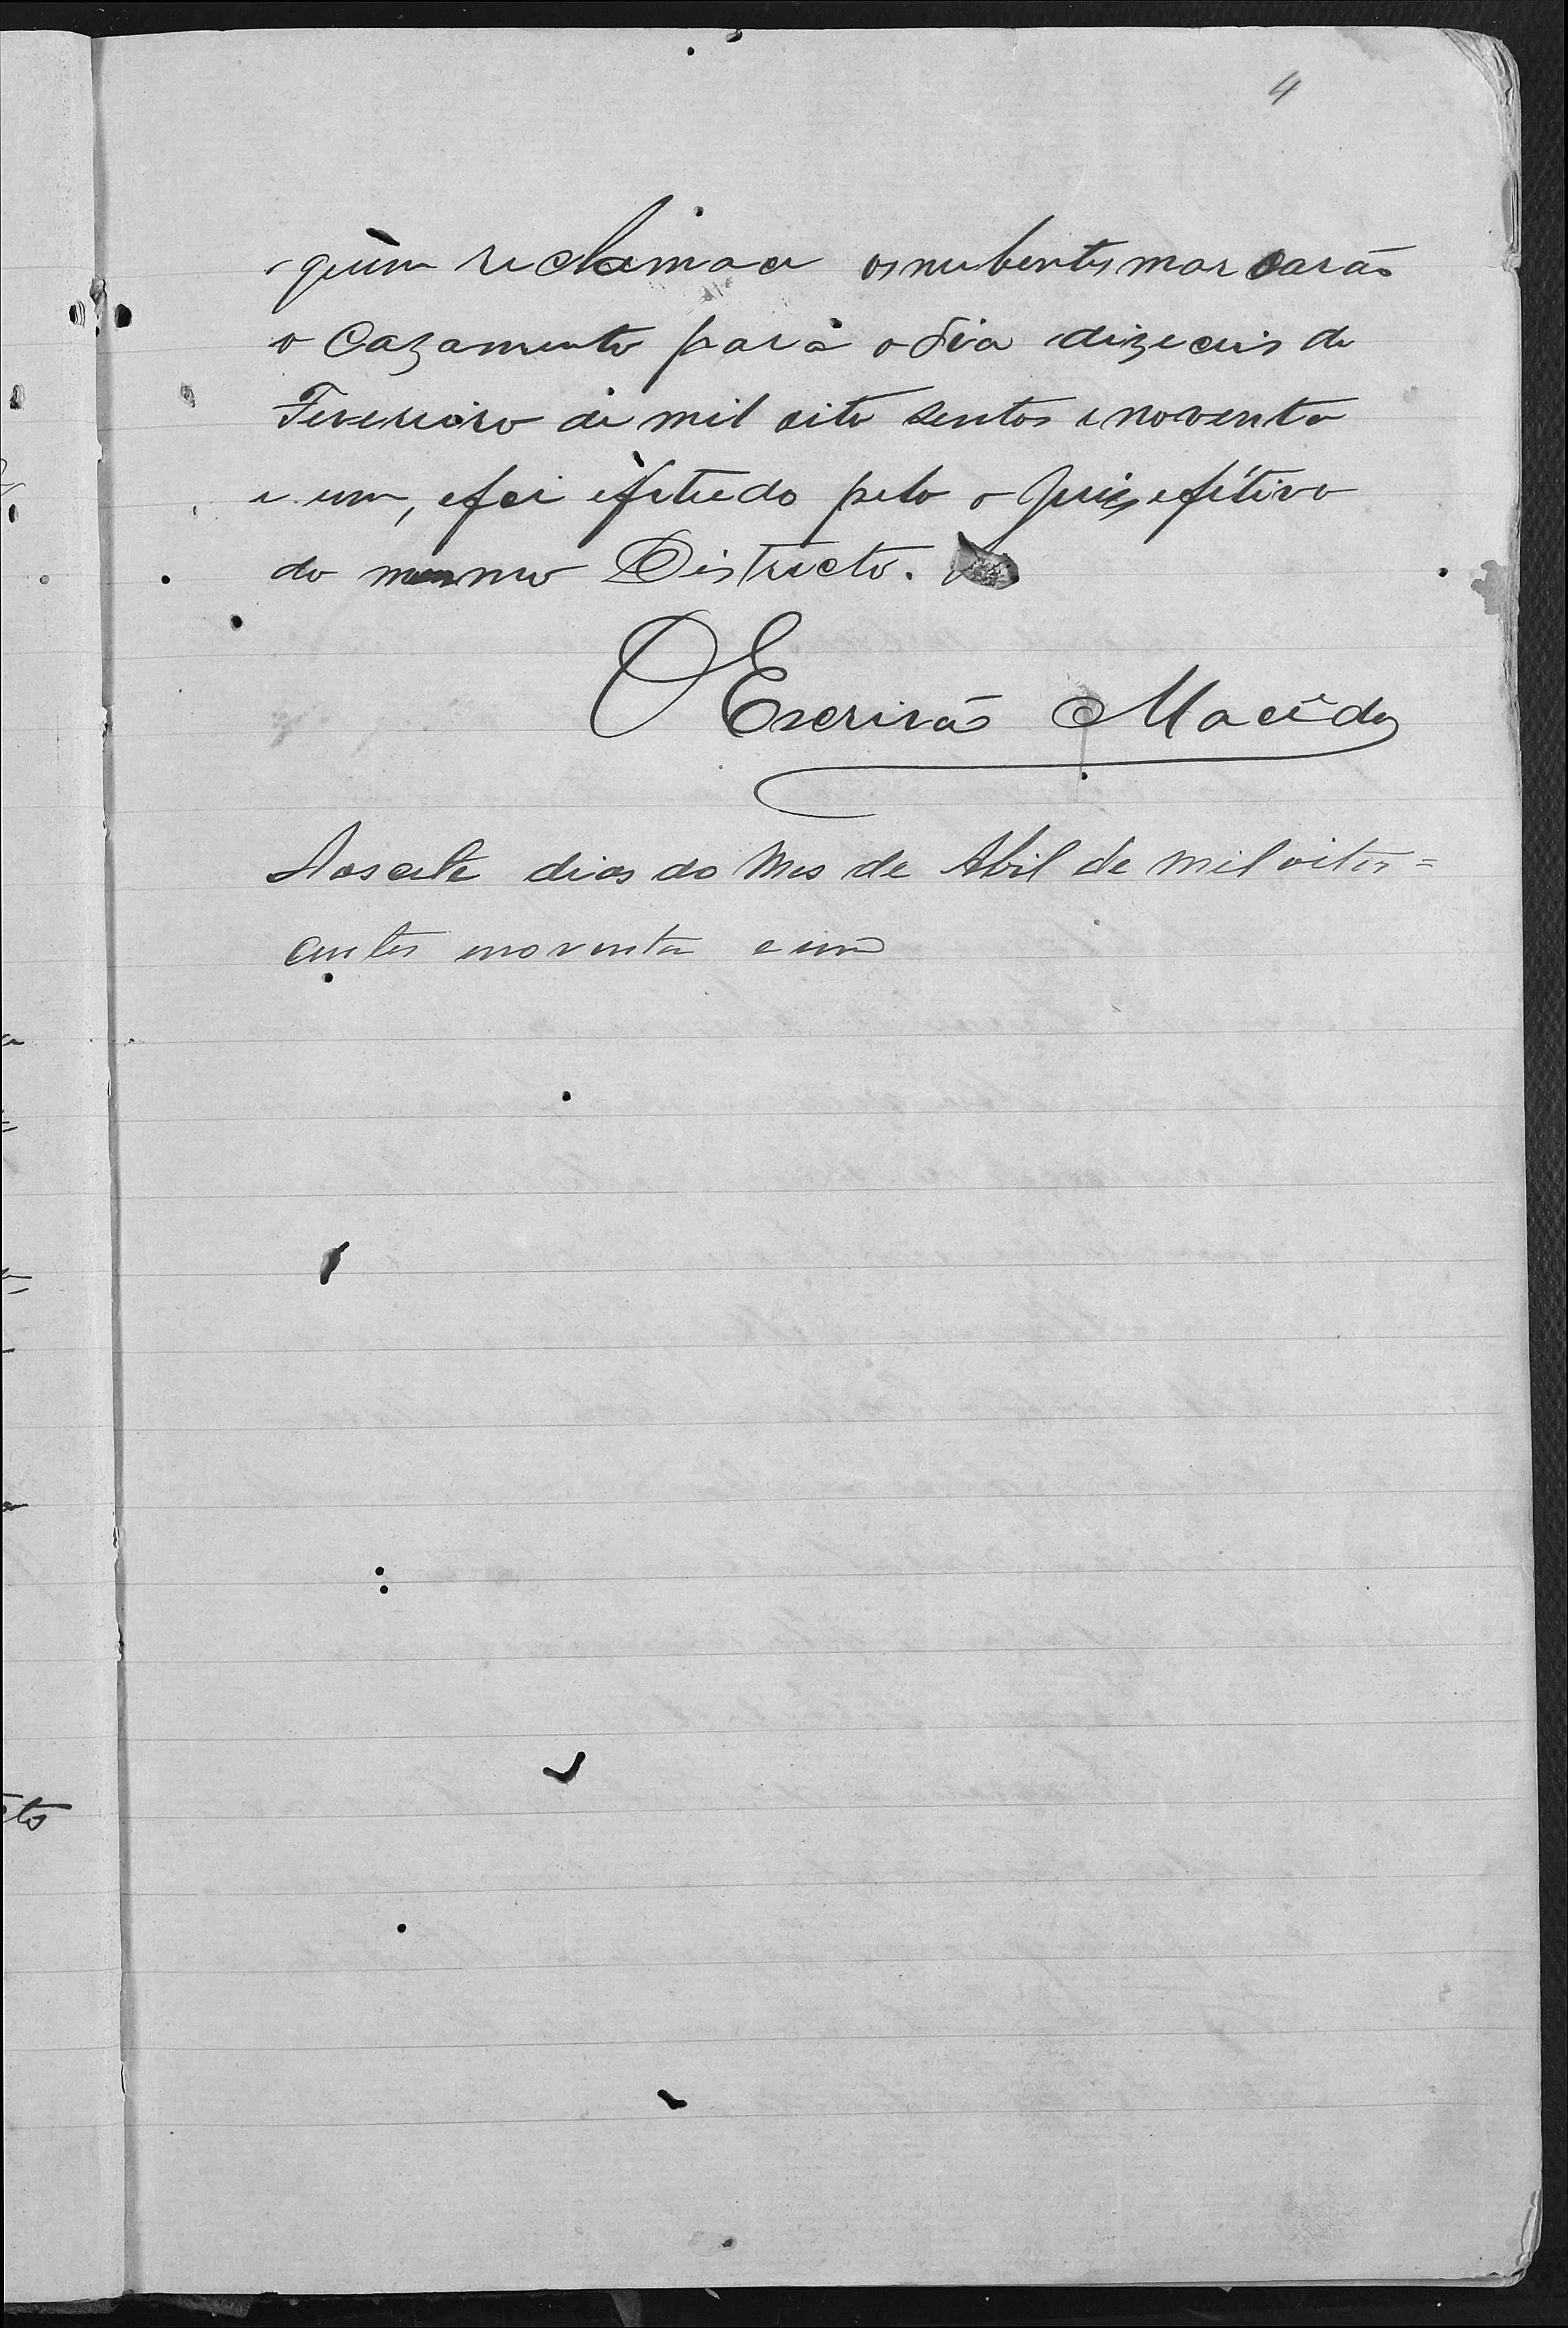 4
quem reclamace os nubentes marcarão
o Cazamento para o dia dizeceis de
Fevereiro de mil oito sentos e noventa
e um, e foi efetuedo pelo o Juiz efétivo
do mesmo Districto.
O Escrivão Macêdo
Aos cete dias do Mes de Abil de mil oitos=
centos enoventa e um